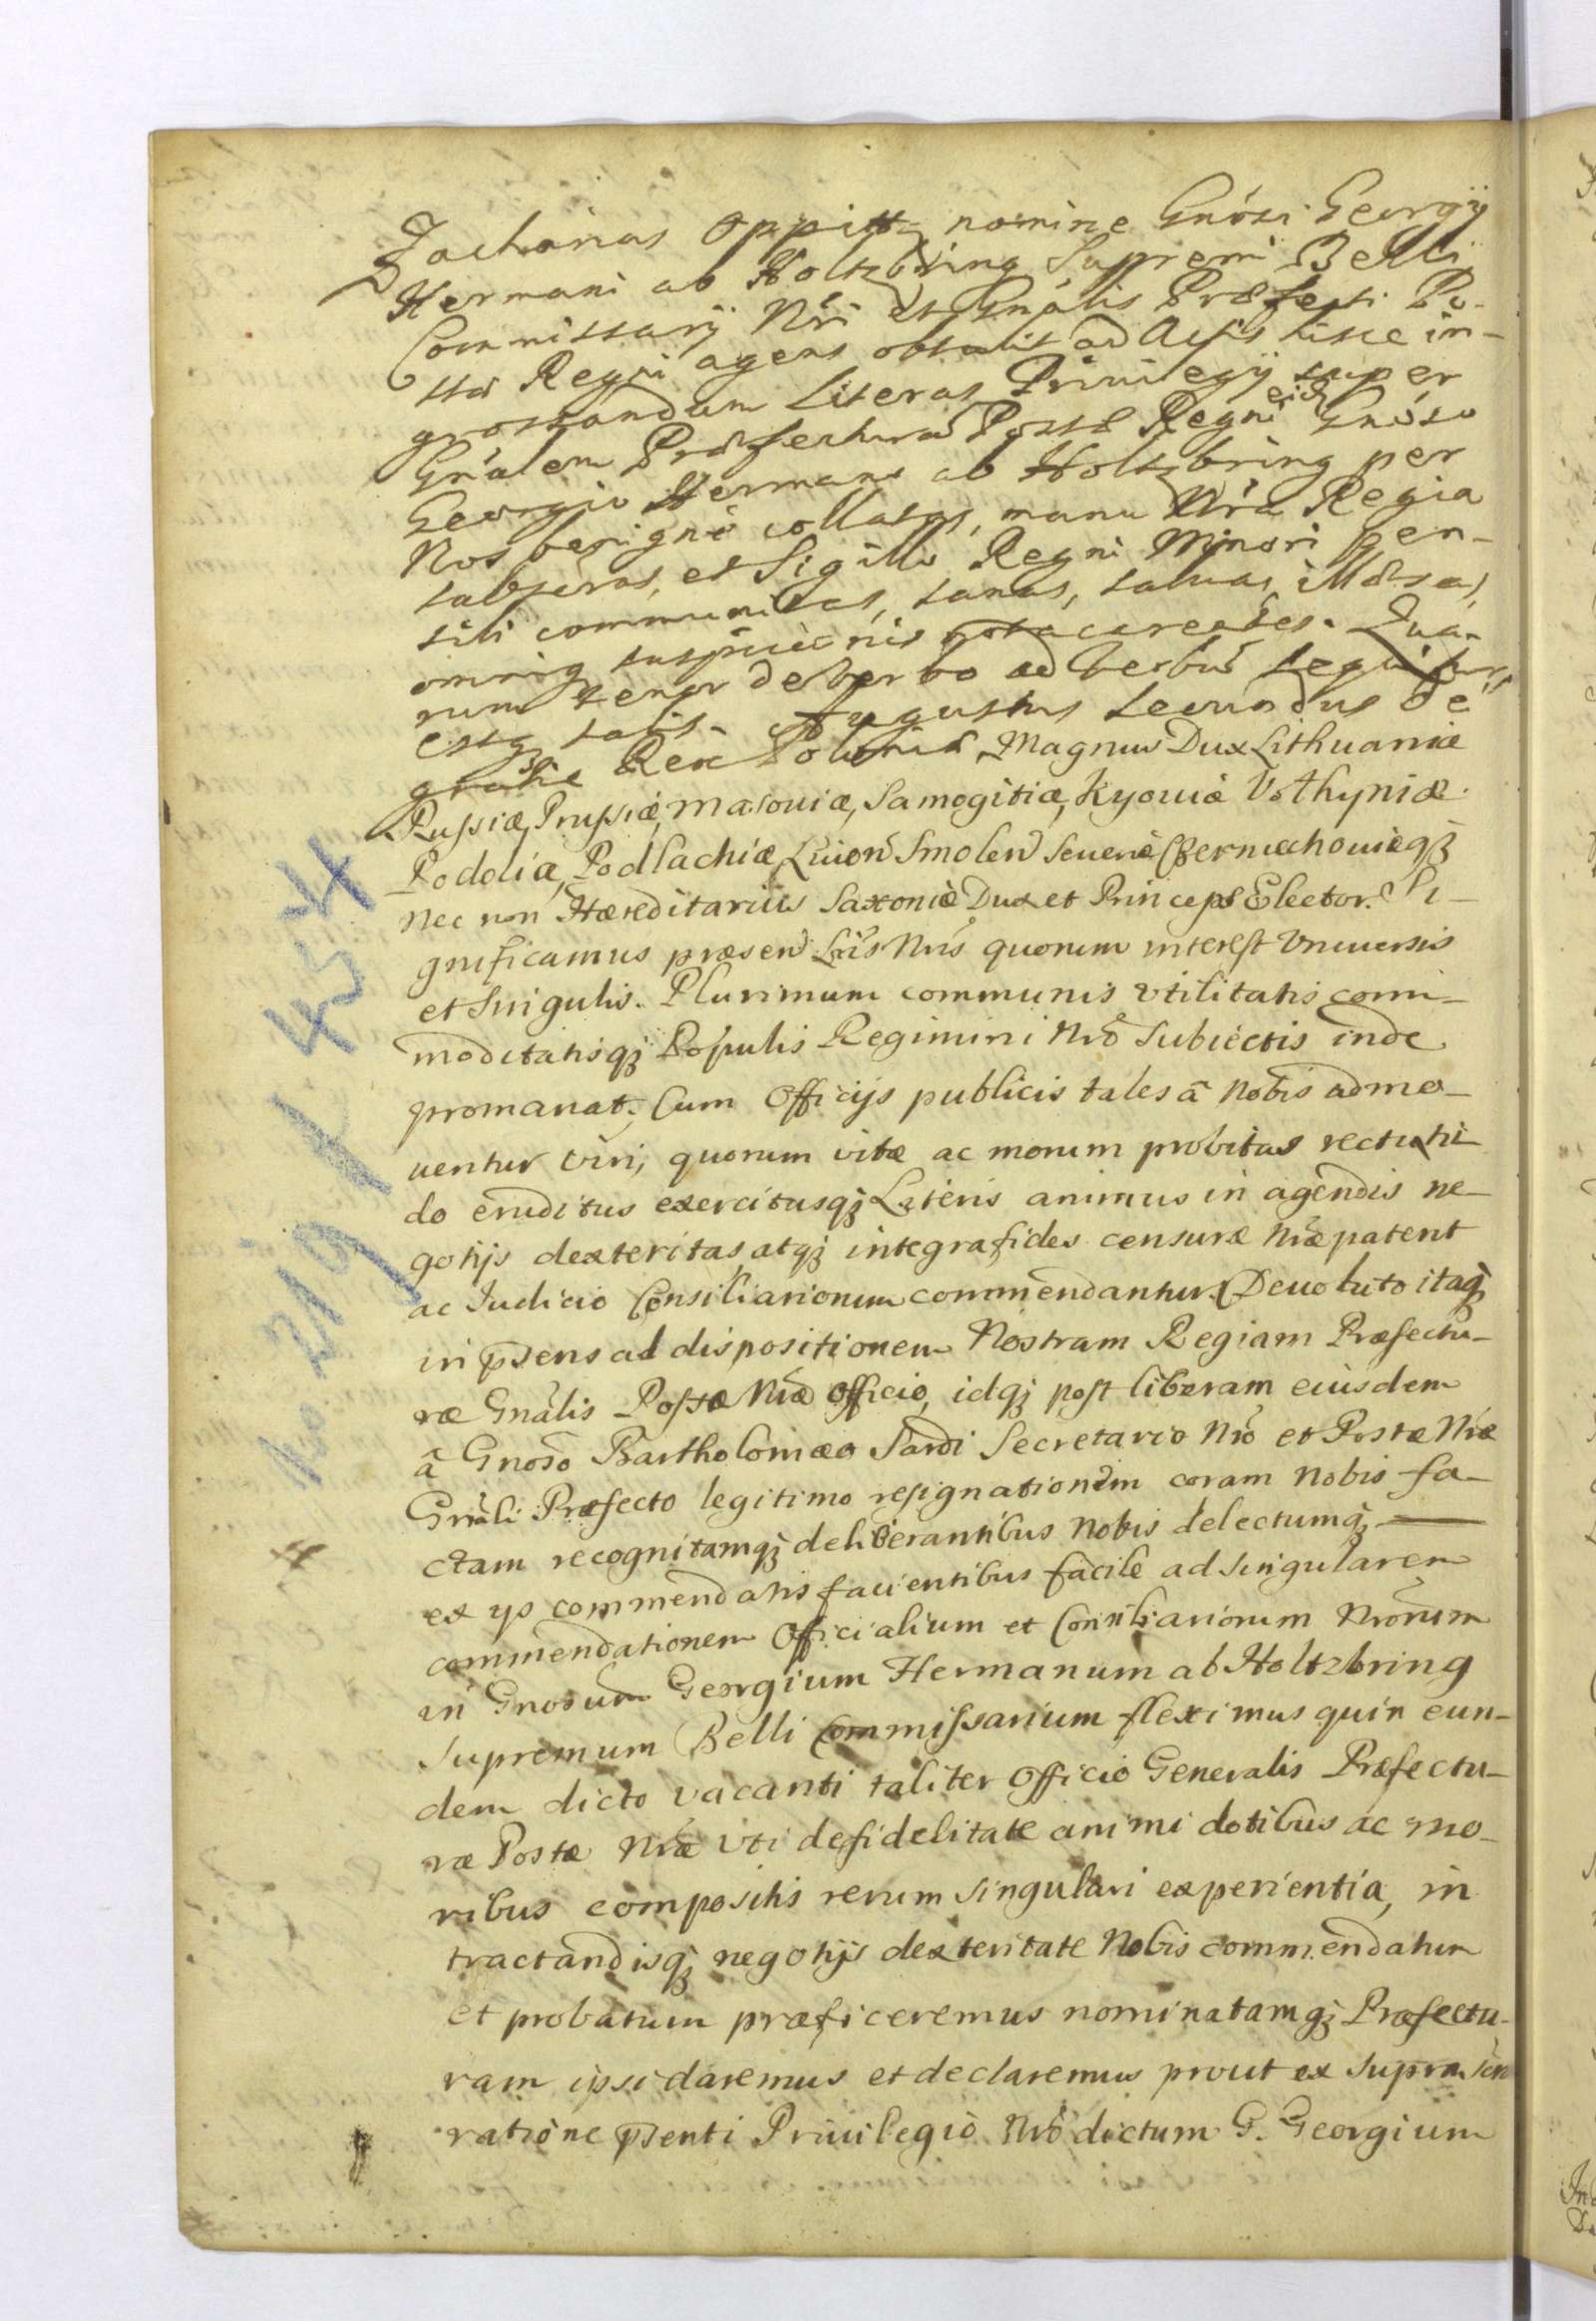 Zacharias Oppitz nomine Gnósi Georgij
Hermani ab Holtzbring Supremi Belli
Commissarij Nri et Gnális Præfecti Po-
stæ Regni agens obtulit ad Acta hisce in-
grossandum Literas Priuilegij super
Gnálem Præfecturā Postæ Regni eid Gnóso
Georgio Hermano ab Holtzbring per
Nos benignè collatas, manu Nrá Regia
subscras, et Sigillo Regni Minori pen-
sili communitas, sanas, saluas, illæsas,
omniq suspicionis nota carentes. Qua-
rum tenor de verbo ad verbū sequitur
estq talis. Augustus Secundus Dei
gratia Rex Poloniæ Magnus Dux Lithuaniæ
Russiæ, Prussiæ, Masouiæ, Samogitiæ, Kyouiæ Volhyniæ
Podoliæ, Podlachiæ Liuon Smolen Seueriæ Czerniechouiæq
nec non Hæreditarius Saxoniæ Dux et Princeps Elector. Si-
gnificamus præsen Lris Nris quorum interest Vniuersis
et Singulis. Plurimum communis vtilitatis com-
moditatisq Populis Regimini Nrō Subiectis inde
promanat; Cum Officijs publicis tales ā Nobis admo-
uentur Viri, quorum vitæ ac morum probitas rectitu
do eruditus exercitusq Literis animus in agendis ne-
gotijs dexteritas, atq integra fides censuræ Nræ patent
ac Iudicio Consiliariorum commendantur. Deuoluto itaq
in p̄sens ad dispositionem Nostram Regiam Præfectu-
ræ Gnális Postæ Nræ Officio, idq post liberam eiusdem
ā Gnoso Bartholomæo Sardi Secretario Nrō et Postæ Nræ
Gnáli Præfecto legitimo resignationem coram Nobis fa-
ctam recognitamq deliberantibus Nobis delectumq
ex ijs commendatis facientibus facilè ad Singularem
commendationem Officialium et Consiliariorum Nrorum
in Gnosum Georgium Hermanum ab Holtzbring
Supremum Belli Commissarium fleximus quin eun-
dem dicto vacanti taliter Officio Generalis Præfectu-
ræ Postæ Nræ Vti de fidelitate animi dotibus ac mo-
ribus compositis rerum singulari experientia, in
tractandisq negotijs dexteritate Nobis commendatum
et probatum præficeremus nominatamq Præfectu-
ram ipsi daremus et declaremus prout ex Supra
ratione p̄senti Priuilegio Nrō dictum G. Georgium
No 219 / 4574